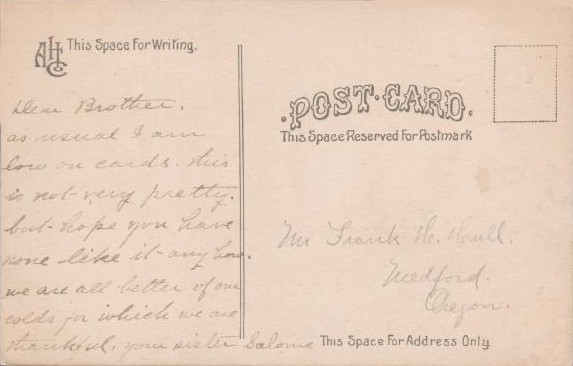 AHC
This Space For Writing.
Dear Brother,
as usual I am
low on cards. this
is not very pretty.
but hope you have
none like it any how.
we are all better of our
colds for which we are
thankful, your sister Salome
POST·CARD.
This Space Reserved For Postmark
Mr Frank H.
Medford.
Oregon.
This Space For Address Only